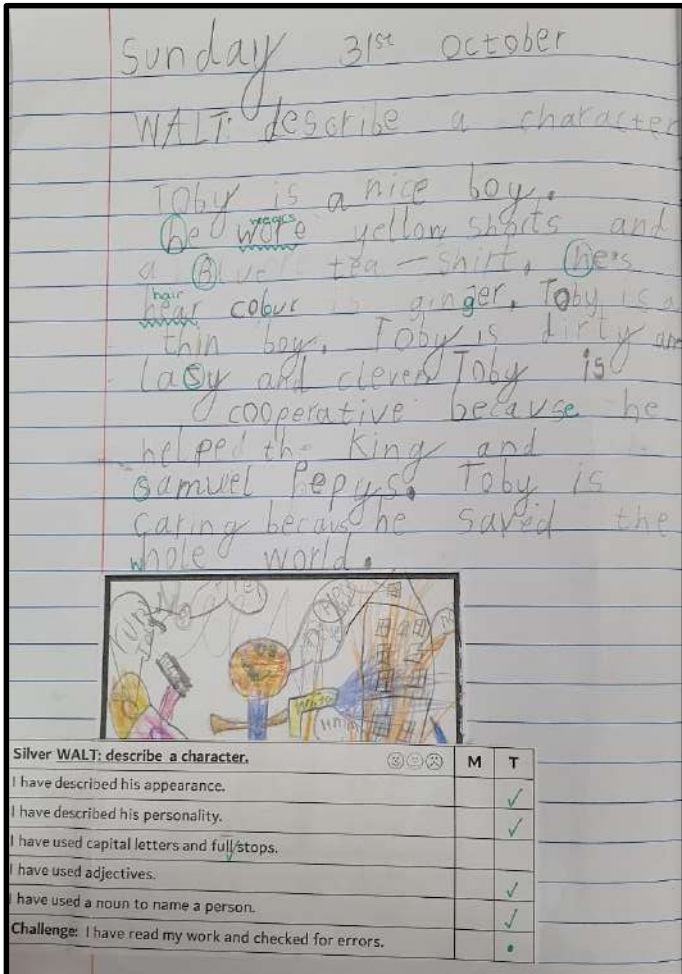 Sunday 31st October
WALT: describe a character
Toby is a nice boy.
wears
he wore yellow shorts and
a Blue tea-shirt, hers
hair
hear colour is ginger. Toby is a
thin boy. Toby is dirty and
lasy and clever Toby is
cooperative because he
helped the King and
samuel Pepys. Toby is
caring becaus he saved the
whole world.
Silver WALT: describe a character. M T
I have described his appearance. ✓
I have described his personality. ✓
I have used capital letters and full stops.
I have used adjectives. ✓
I have used a noun to name a person. ✓
Challenge: I have read my work and checked for errors.